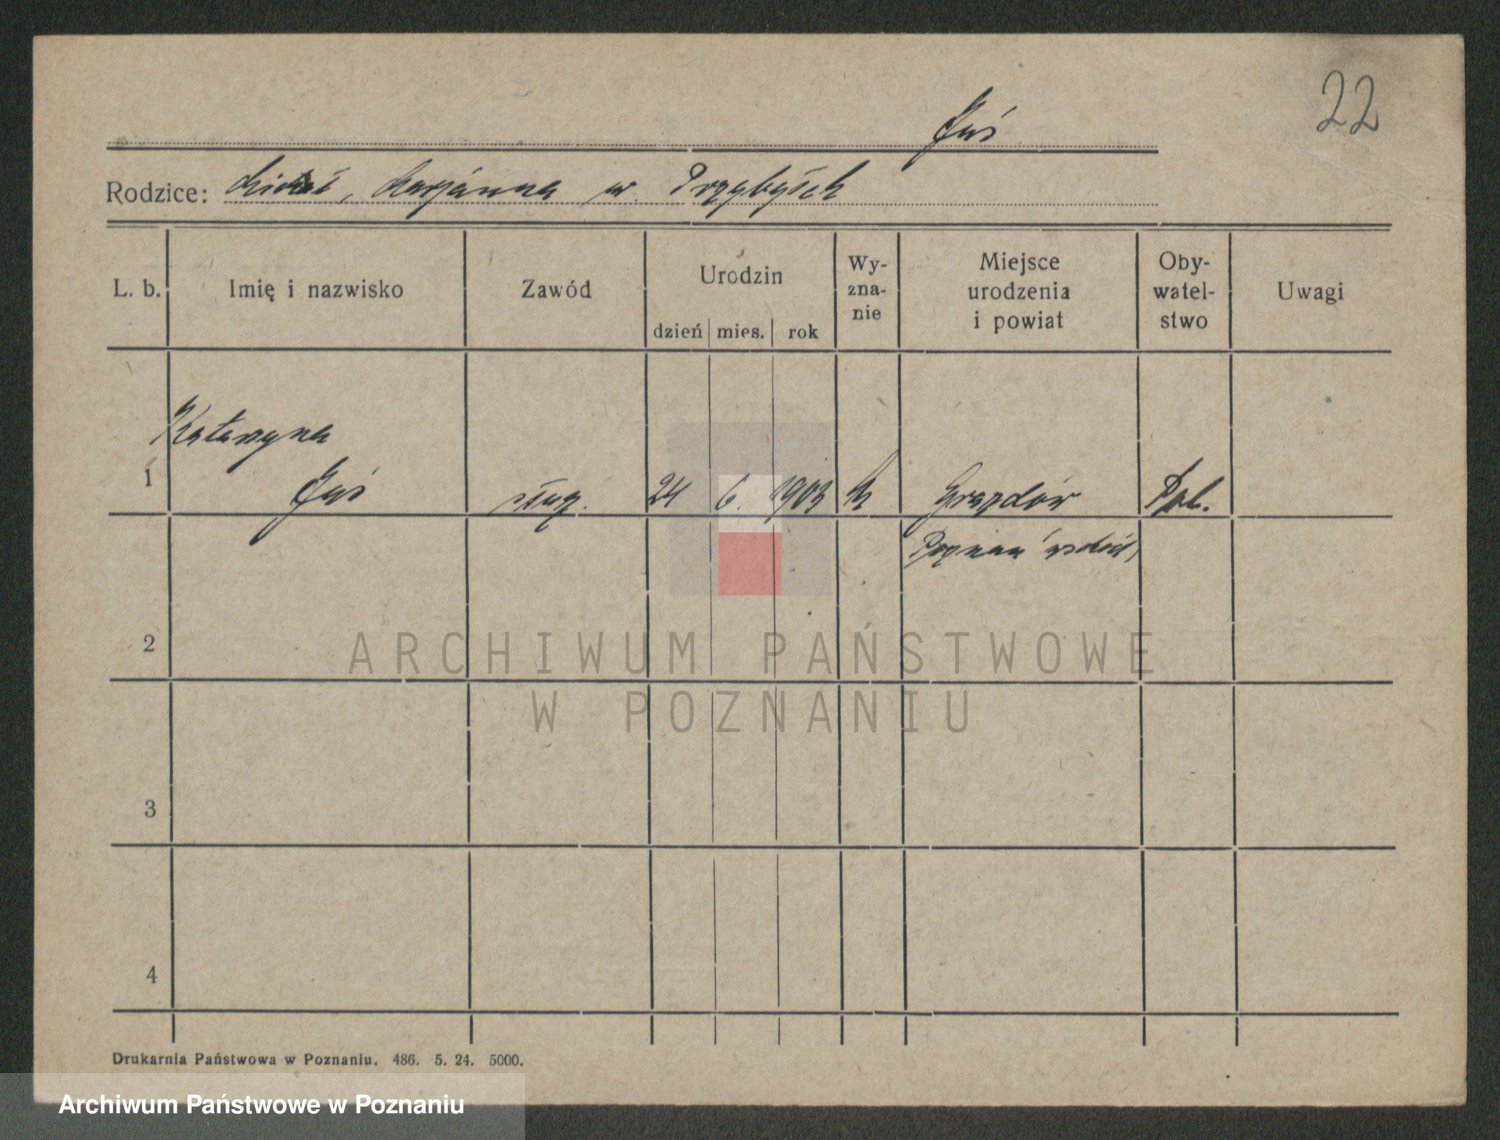 22
Juś
Rodzice: Marjanna w. Przybysch
L. b.
Imię i nazwisko
Zawód
Urodzin
dzień mies. rok
Wy-
zna-
nie
Miejsce
urodzenia
i powiat
Oby-
watel-
stwo
Uwagi
Katarzyna
1 Juś służ. 24 6. 1903 k Pol.
Poznań wschód
2
ARCHIWUM PAŃSTWOWE
W POZNANIU
3
4
Drukarnia Państwowa w Poznaniu. 486. 5. 24. 5000.
Archiwum Państwowe w Poznaniu